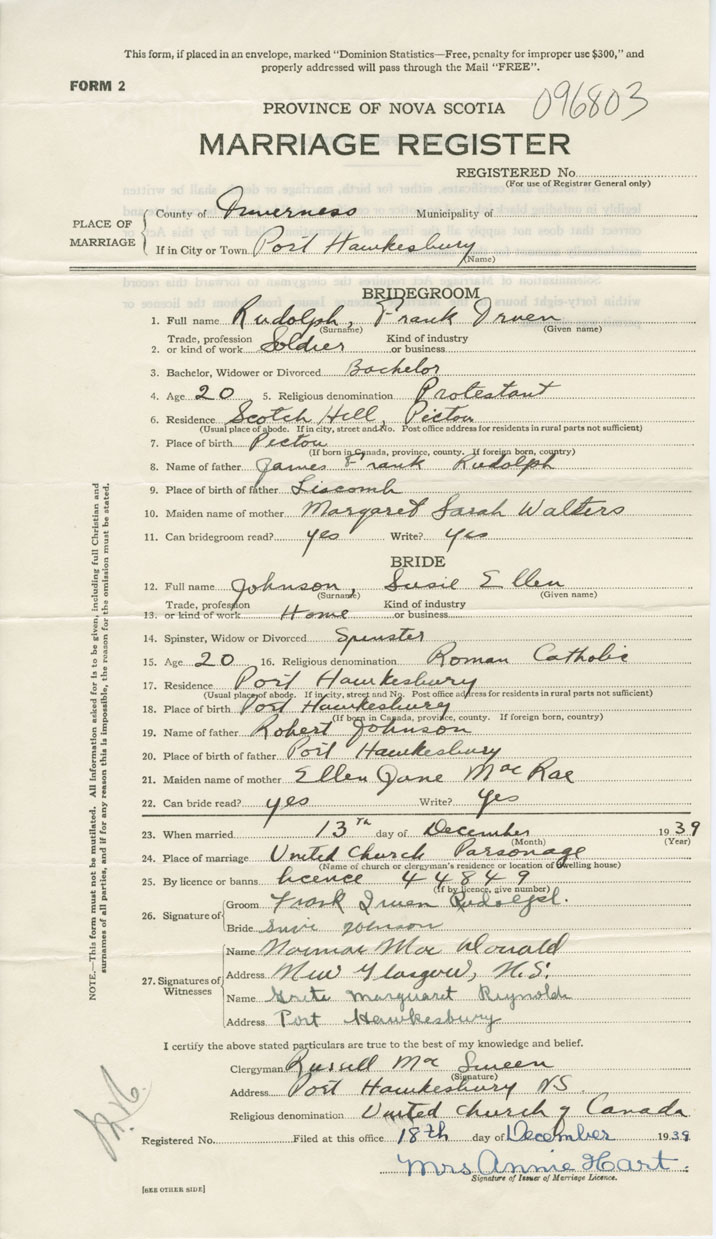 This form, if placed in an envelope, marked "Dominion Statistics—Free, penalty for improper use $300," and
properly addressed will pass through the Mail "FREE".
FORM 2
096803
PROVINCE OF NOVA SCOTIA
MARRIAGE REGISTER
REGISTERED No.
(For use of Registrar General only)
PLACE OF MARRIAGE
County of Inverness Municipality of
If in City or Town Port Hawkesbury
(Name)
BRIDEGROOM
1. Full name Rudolph, Frank Irven
(Surname) (Given name)
2. Trade, profession or kind of work Soldier Kind of industry or business
3. Bachelor, Widower or Divorced Bachelor
4. Age 20 5. Religious denomination Protestant
6. Residence Scotch Hill, Pictou
(Usual place of abode. If in city, street and No. Post office address for residents in rural parts not sufficient)
7. Place of birth Pictou
(If born in Canada, province, county. If foreign born, country)
8. Name of father James Frank Rudolph
9. Place of birth of father Liscomb
10. Maiden name of mother Margaret Sarah Walters
11. Can bridegroom read? yes Write? yes
BRIDE
12. Full name Johnson, Susie Ellen
(Surname) (Given name)
13. Trade, profession or kind of work Home Kind of industry or business
14. Spinster, Widow or Divorced Spinster
15. Age 20 16. Religious denomination Roman Catholic
17. Residence Port Hawkesbury
(Usual place of abode. If in city, street and No. Post office address for residents in rural parts not sufficient)
18. Place of birth Port Hawkesbury
(If born in Canada, province, county. If foreign born, country)
19. Name of father Robert Johnson
20. Place of birth of father Port Hawkesbury
21. Maiden name of mother Ellen Jane MacRae
22. Can bride read? yes Write? yes
23. When married 13th day of December 1939
(Month) (Year)
24. Place of marriage United Church Parsonage
(Name of church or clergyman's residence or location of dwelling house)
25. By licence or banns licence 44849
(If by licence, give number)
26. Signature of
Groom Frank Irven Rudolph.
Bride Susie Johnson
27. Signatures of Witnesses
Name Norman MacDonald
Address New Glasgow, N.S.
Name Marguaret Reynolds
Address Port Hawkesbury
I certify the above stated particulars are true to the best of my knowledge and belief.
Clergyman Russell Mac
(Signature)
Address Port Hawkesbury NS
Religious denomination United Church of Canada
Registered No. Filed at this office 18th day of December 1939
Mrs Annie Hart
Signature of Issuer of Marriage Licence.
[SEE OTHER SIDE]
NOTE.—This form must not be mutilated. All information asked for is to be given, including full Christian and
surnames of all parties, and if for any reason this is impossible, the reason for the omission must be stated.